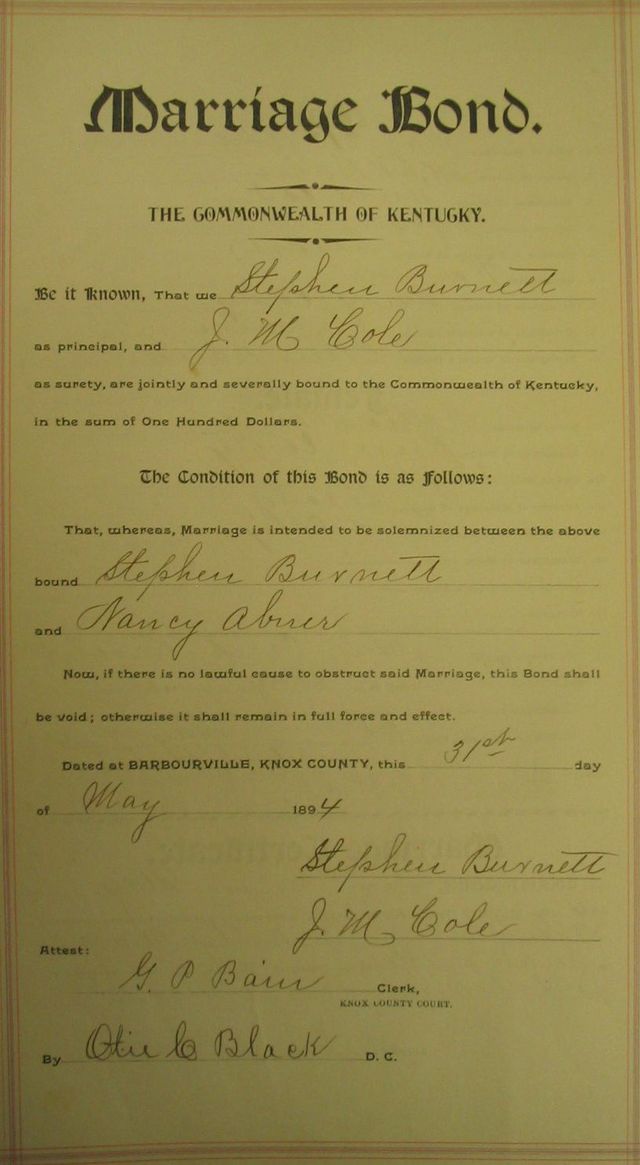 Marriage Bond.
THE COMMONWEALTH OF KENTUCKY.
Be it Known, That we Stephen Burnett
as principal, and J. M Cole
as surety, are jointly and severally bound to the Commonwealth of Kentucky,
in the sum of One Hundred Dollars.
The Condition of this Bond is as Follows:
That, whereas, Marriage is intended to be solemnized between the above
bound Stephen Burnett
and Nancy Abner
Now, if there is no lawful cause to obstruct said Marriage, this Bond shall
be void; otherwise it shall remain in full force and effect.
Dated at BARBOURVILLE, KNOX COUNTY, this 31st day
of May 1894
Stephen Burnett
J. M Cole
Attest:
G. P Bain Clerk,
KNOX COUNTY COURT.
By Otie C Black D. C.